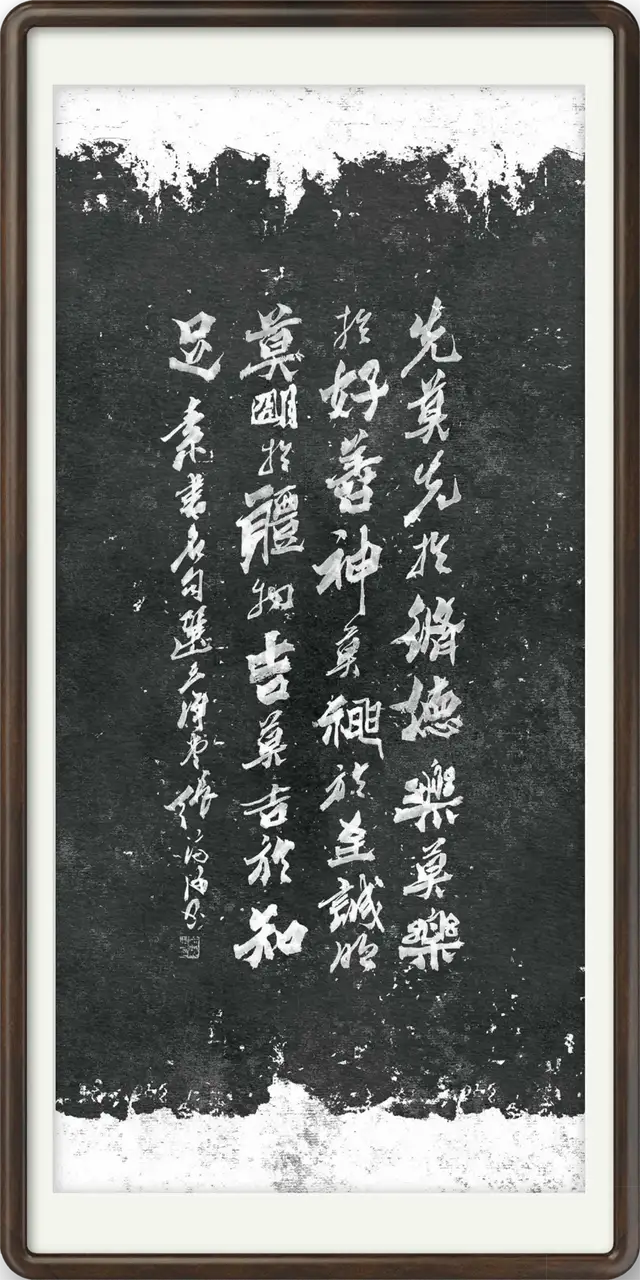 先莫先於脩德樂莫樂
於好善神莫神於至誠明
莫明於體物吉莫吉於知
足 素書名句選